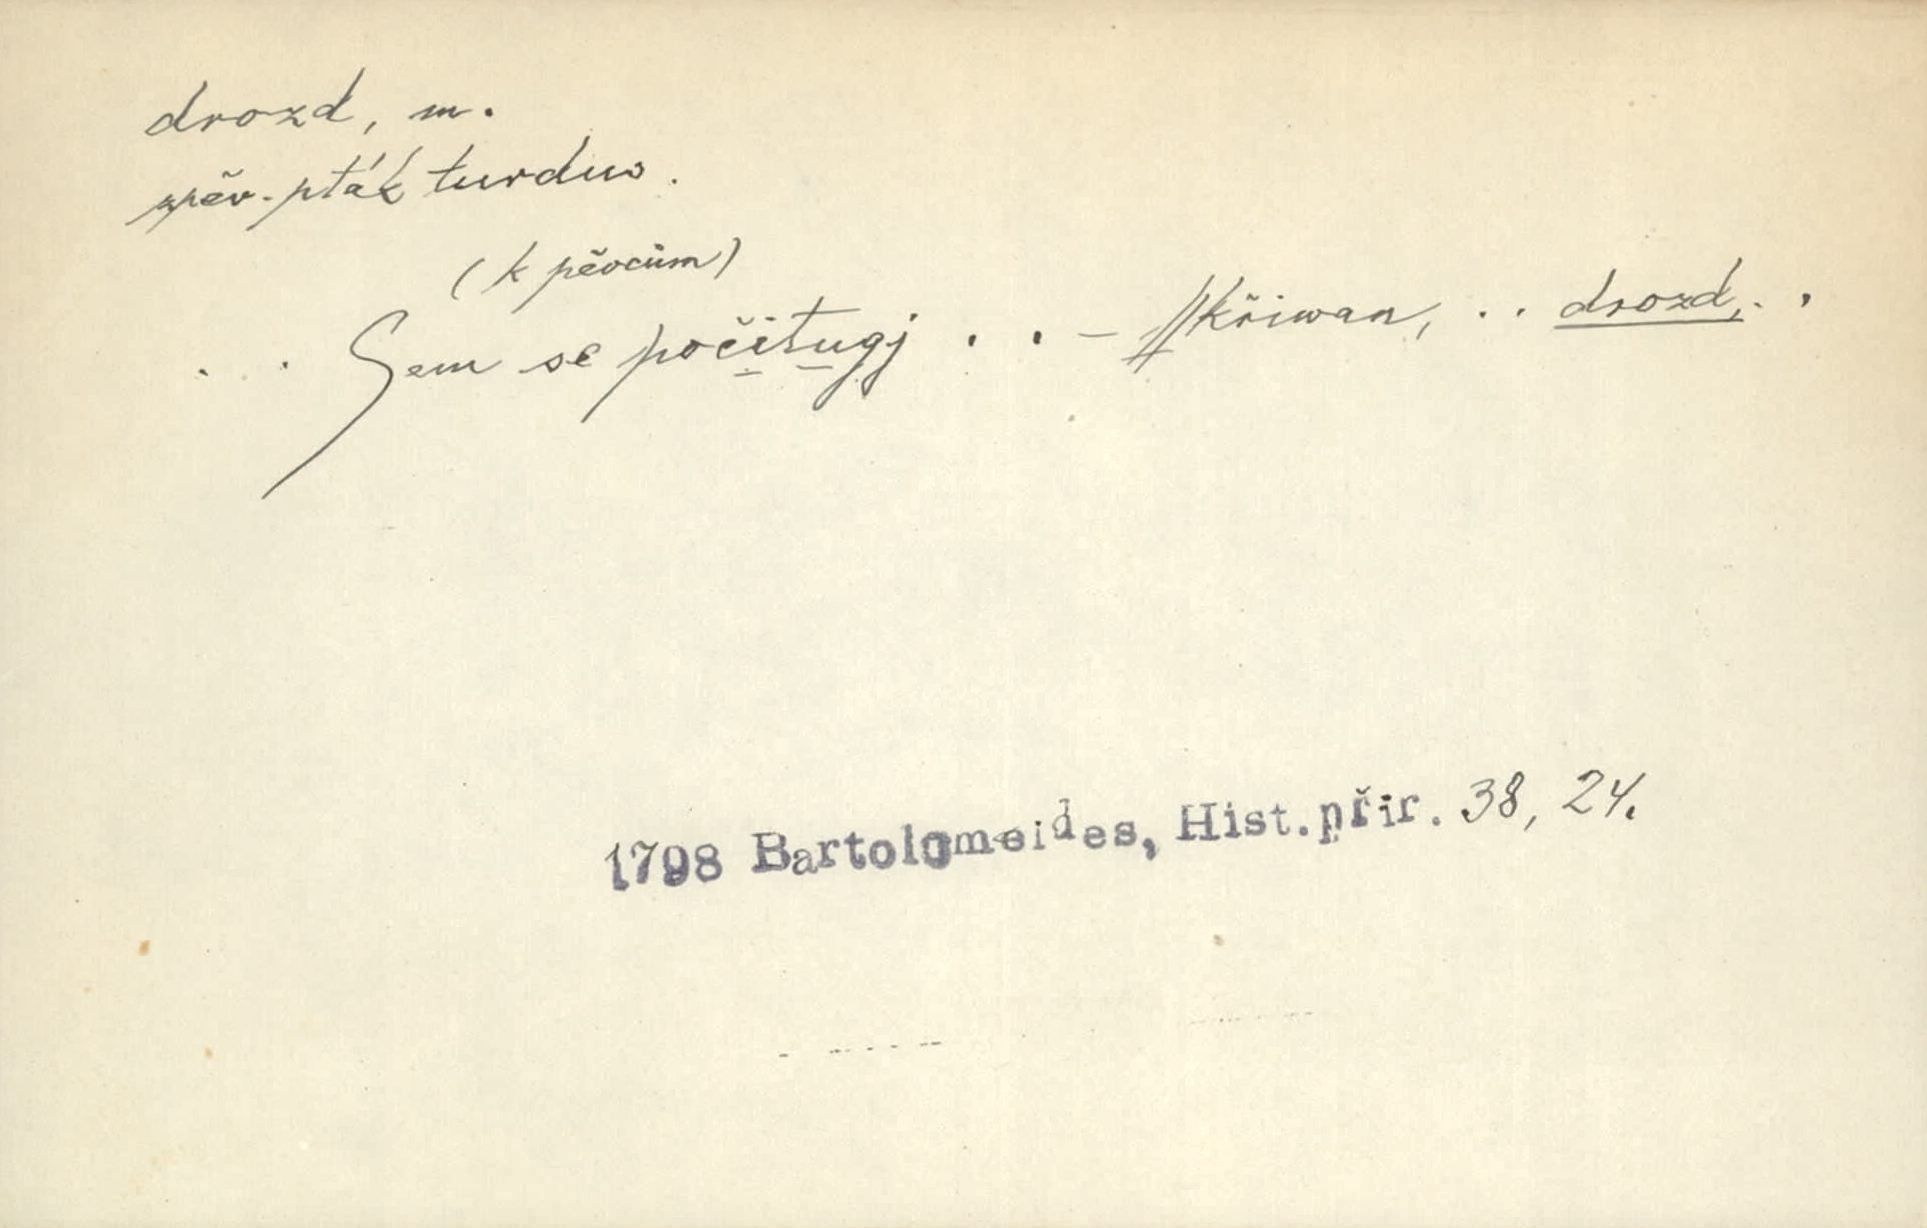 drozd, m.
zpěv. pták turdus.
(k pěvcům)
. . Sem se počitugj . . – Skřiwan, . . drozd, . .
1798 Bartolomeides, Hist. přir. 38, 24.